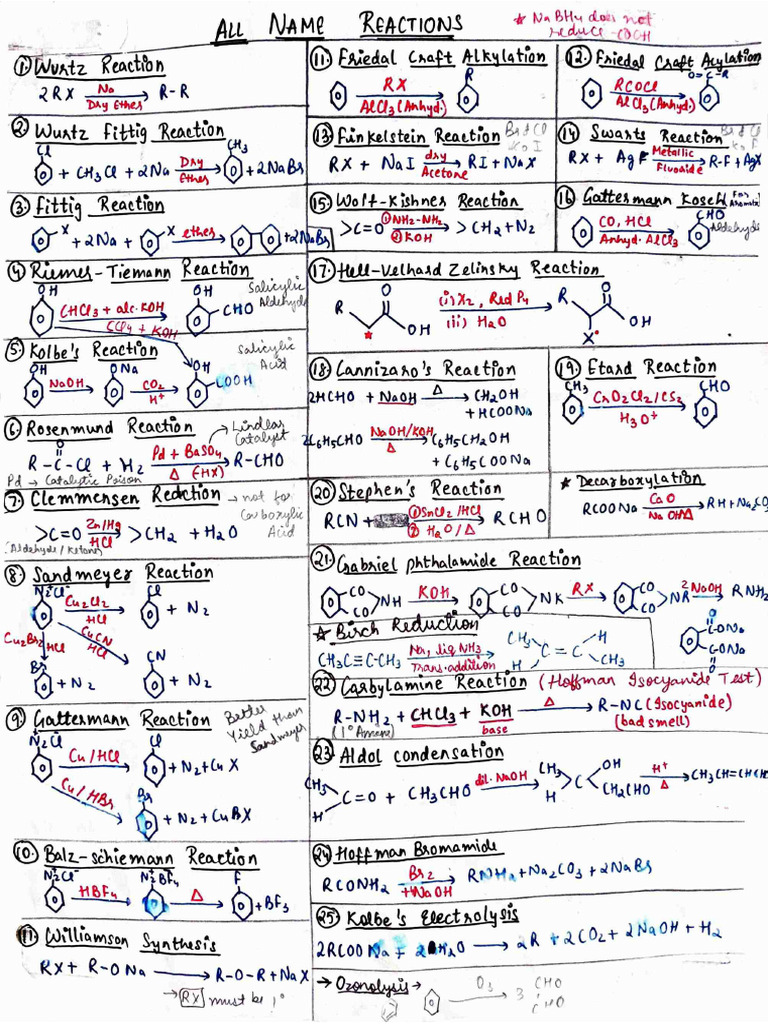 ALL NAME REACTIONS
* NaBH4 does not
reduce -COOH
1. Wurtz Reaction
2RX Na Dry Ether R-R
2. Wurtz Fittig Reaction
Cl + CH3Cl + 2Na Dry Ether CH3 + 2NaBr
3. Fittig Reaction
X + 2Na + X ether + 2NaBr
4. Riemes-Tiemann Reaction
OH CHCl3 + alc. KOH OH CHO Salicylic Aldehyde
CCl4 + KOH
5. Kolbe's Reaction
Salicylic Acid
OH NaOH ONa CO2 H+ OH COOH
6. Rosenmund Reaction
Lindlar Catalyst
R-C-Cl + H2 Pd + BaSO4 Δ (-HX) R-CHO
O
Pd → Catalytic Poison
7. Clemmensen Reaction → not for Carboxylic Acid
>C=O Zn/Hg HCl >CH2 + H2O
Aldehyde/Ketones
8. Sandmeyer Reaction
N2Cl Cu2Cl2 HCl Cl + N2
Cu2Br2 HCl CuCN HCl
Br + N2 CN + N2
9. Gattermann Reaction Better Yield than Sandmeyer
N2Cl Cu/HCl Cl + N2 + CuX
Cu/HBr Br + N2 + CuBX
10. Balz-Schiemann Reaction
N2Cl HBF4 N2BF4 Δ F + BF3
11. Williamson Synthesis
RX + R-ONa R-O-R + NaX
→ RX must be 1°
11. Friedal Craft Alkylation
RX AlCl3 (Anhyd.) R
12. Friedal Craft Acylation
RCOCl AlCl3 (Anhyd.) O=C-R
13. Finkelstein Reaction
RX + NaI dry Acetone RI + NaX
14. Swarts Reaction
RX + AgF Metallic Fluoride R-F + AgX
15. Wolf-Kishner Reaction
>C=O ① NH2-NH2 ② KOH >CH2 + N2
16. Gattermann Koseh For Aromatic Aldehyde
CO, HCl Anhyd. AlCl3 CHO
17. Hell-Velhard Zelinsky Reaction
R O OH * (i) X2, Red P4 (ii) H2O R O OH X
18. Cannizaro's Reaction
2HCHO + NaOH Δ CH2OH
+ HCOONa
2C6H5CHO NaOH/KOH Δ C6H5CH2OH
+ C6H5COONa
19. Etard Reaction
CH3 CrO2Cl2/CS2 H3O+ CHO
20. Stephen's Reaction
RCN + ① SnCl2/HCl ② H2O/Δ RCHO
* Decarboxylation
RCOONa CaO NaOH/Δ RH + Na2CO
21. Gabriel phthalamide Reaction
CO CO NH KOH CO CO NK RX CO CO NR 2NaOH RNH2
CONa CONa
O O
☆ Birch Reduction
CH3C≡C-CH3 Na, liq NH3 Trans. addition CH3 H C=C H CH3
22. Carbylamine Reaction (Hoffman Isocyanide Test)
R-NH2 + CHCl3 + KOH Δ R-NC (Isocyanide)
(1° Amine) base (bad smell)
23. Aldol condensation
CH3 H C=O + CH3CHO dil. NaOH CH3 H C OH CH2CHO H+ Δ CH3CH=CHCH
24. Hoffman Bromamide
RCONH2 Br2 + NaOH RNH2 + Na2CO3 + 2NaBr
25. Kolbe's Electrolysis
2RCOONa + 2H2O → 2R + 2CO2 + 2NaOH + H2
→ Ozonolysis →
O3 3 CHO CHO